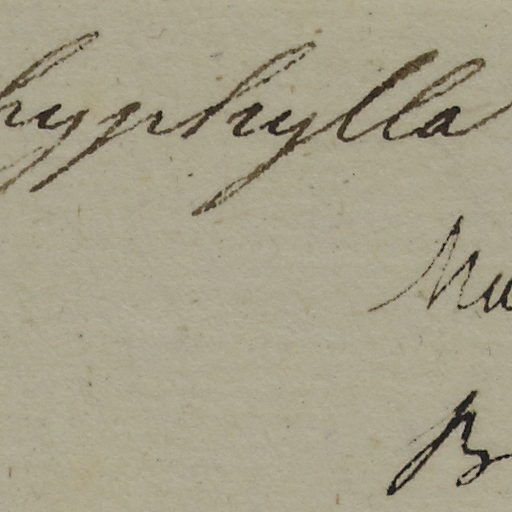 hyphylla
Mu
B